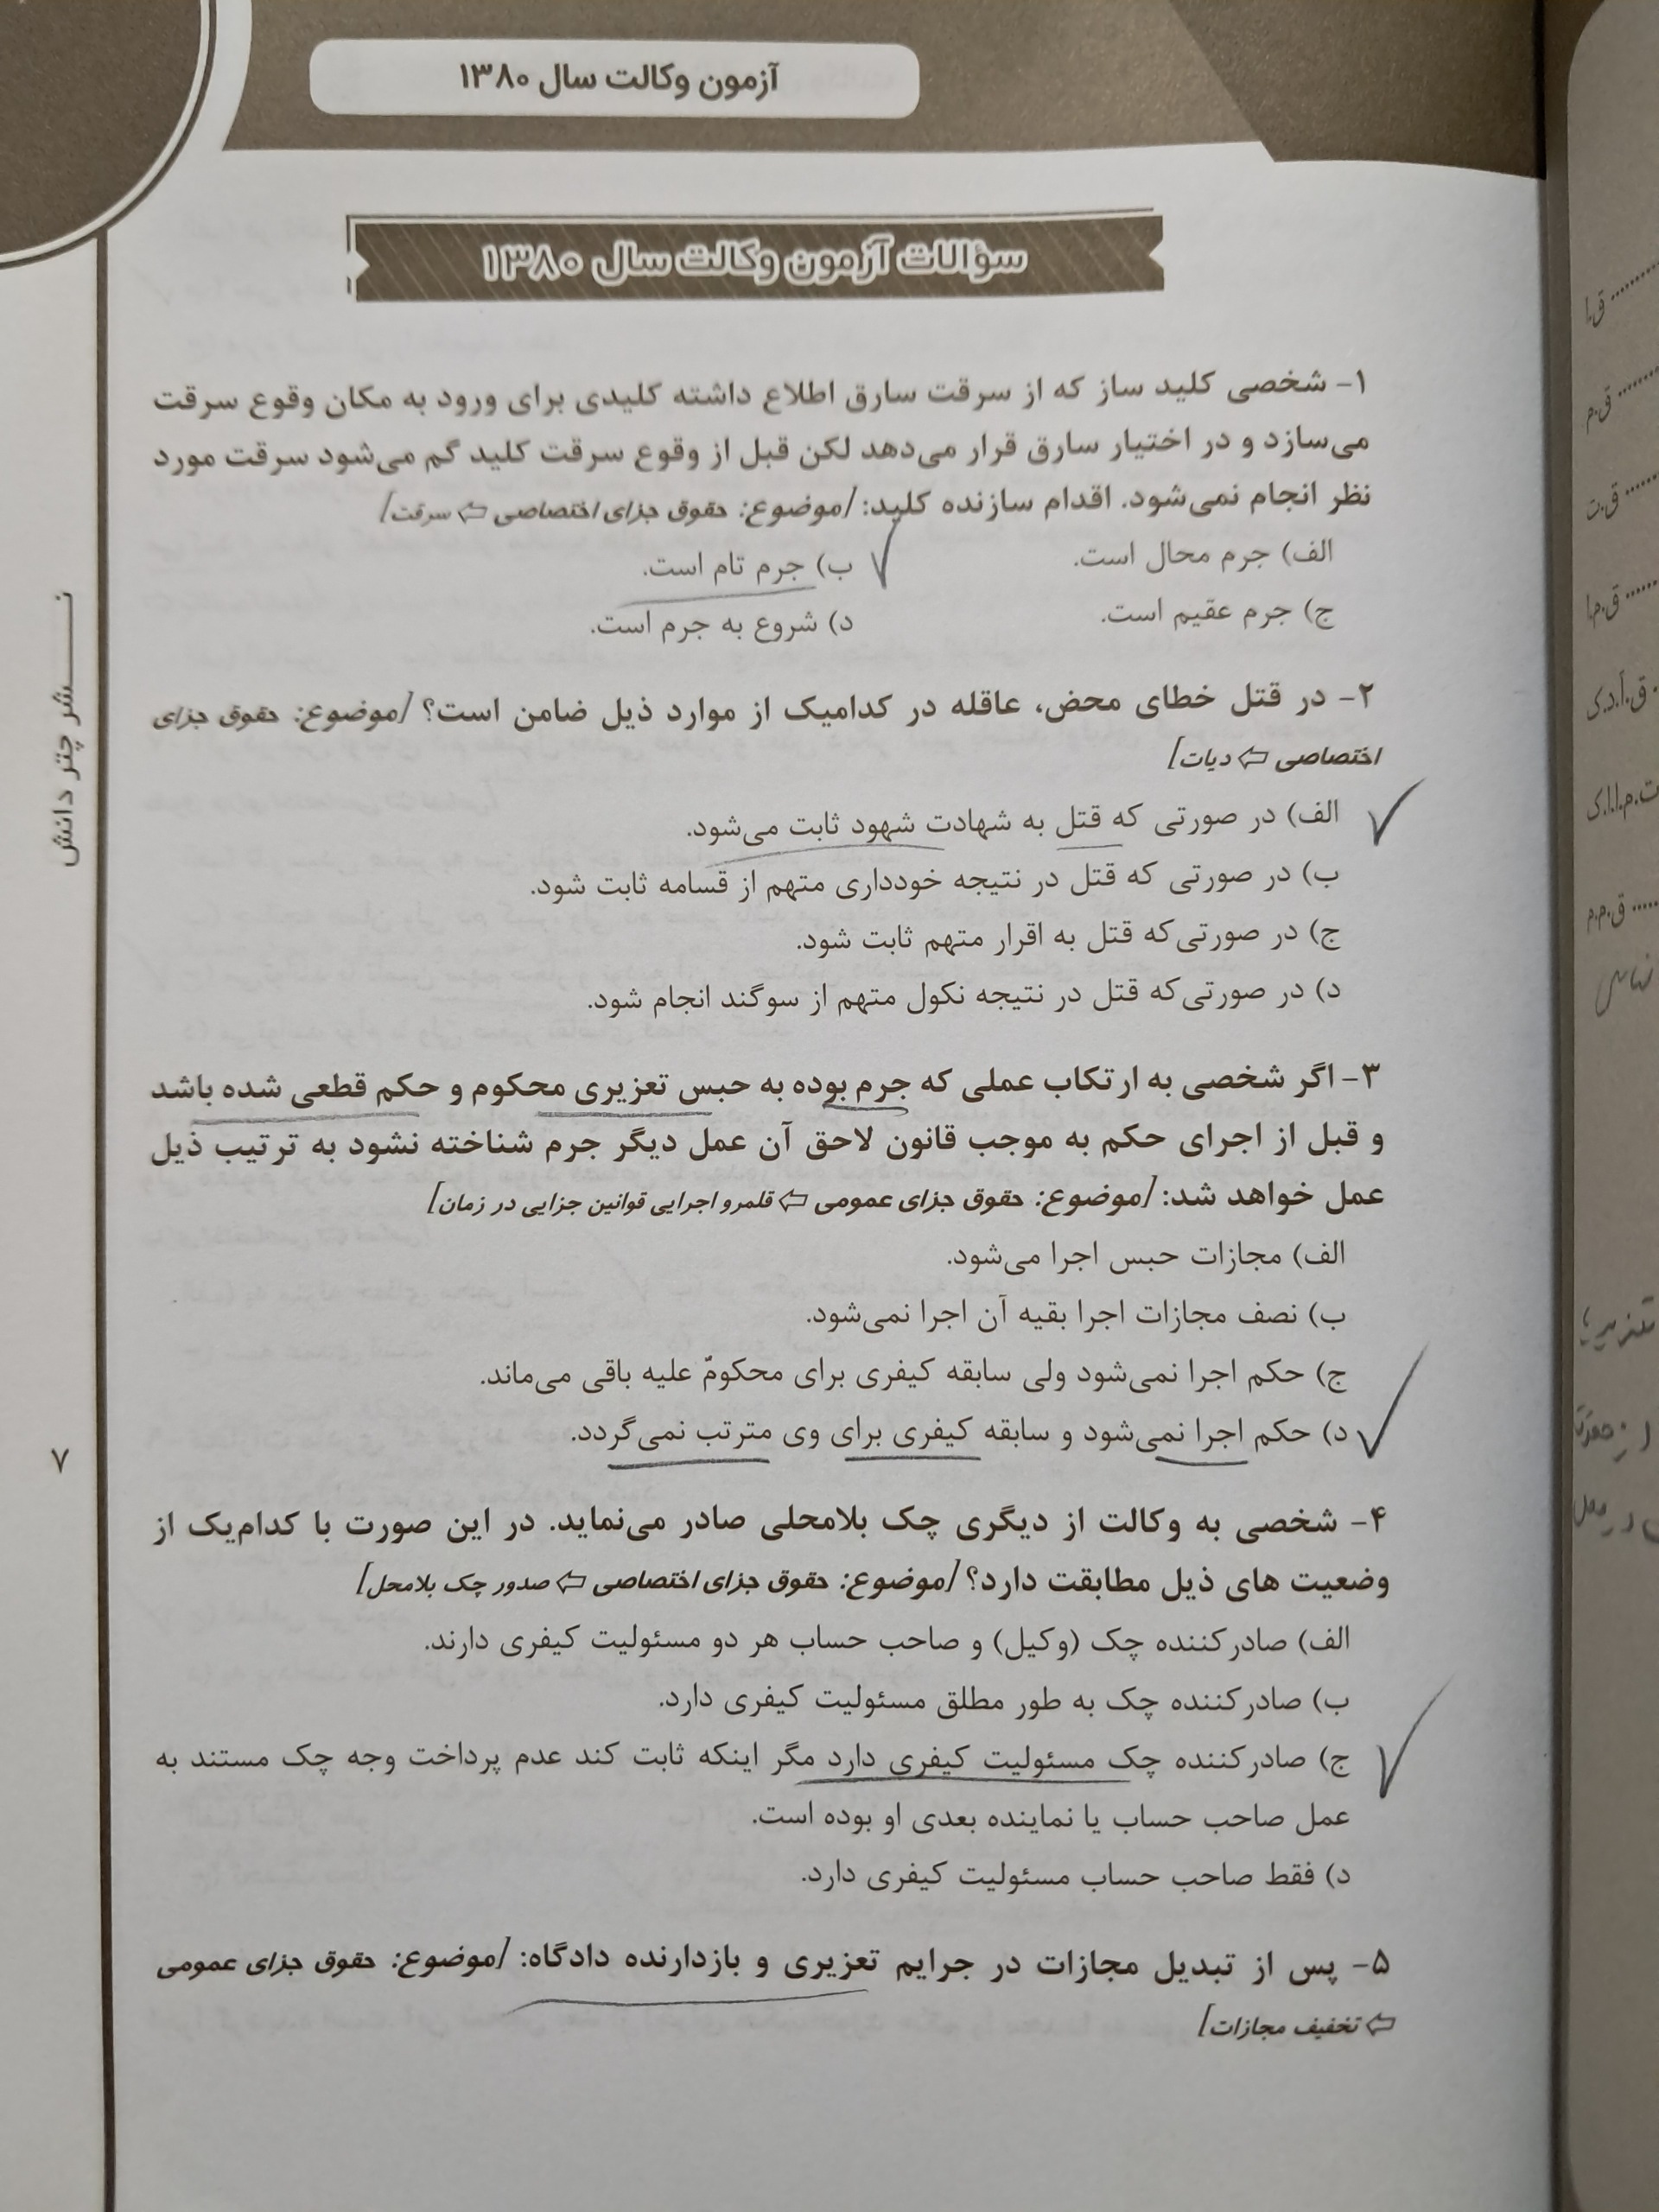 آزمون وکالت سال ۱۳۸۰
سؤالات آزمون وکالت سال ۱۳۸۰
۱- شخصی کلید ساز که از سرقت سارق اطلاع داشته کلیدی برای ورود به مکان وقوع سرقت
می‌سازد و در اختیار سارق قرار می‌دهد لکن قبل از وقوع سرقت کلید گم می‌شود سرقت مورد
نظر انجام نمی‌شود. اقدام سازنده کلید: [موضوع: حقوق جزای اختصاصی ⇦ سرقت]
الف) جرم محال است. ب) جرم تام است.
ج) جرم عقیم است. د) شروع به جرم است.
۲- در قتل خطای محض، عاقله در کدامیک از موارد ذیل ضامن است؟ [موضوع: حقوق جزای
اختصاصی ⇦ دیات]
الف) در صورتی که قتل به شهادت شهود ثابت می‌شود.
ب) در صورتی که قتل در نتیجه خودداری متهم از قسامه ثابت شود.
ج) در صورتی‌که قتل به اقرار متهم ثابت شود.
د) در صورتی‌که قتل در نتیجه نکول متهم از سوگند انجام شود.
۳- اگر شخصی به ارتکاب عملی که جرم بوده به حبس تعزیری محکوم و حکم قطعی شده باشد
و قبل از اجرای حکم به موجب قانون لاحق آن عمل دیگر جرم شناخته نشود به ترتیب ذیل
عمل خواهد شد: [موضوع: حقوق جزای عمومی ⇦ قلمرو اجرایی قوانین جزایی در زمان]
الف) مجازات حبس اجرا می‌شود.
ب) نصف مجازات اجرا بقیه آن اجرا نمی‌شود.
ج) حکم اجرا نمی‌شود ولی سابقه کیفری برای محکومٌ علیه باقی می‌ماند.
د) حکم اجرا نمی‌شود و سابقه کیفری برای وی مترتب نمی‌گردد.
۴- شخصی به وکالت از دیگری چک بلامحلی صادر می‌نماید. در این صورت با کدام‌یک از
وضعیت های ذیل مطابقت دارد؟ [موضوع: حقوق جزای اختصاصی ⇦ صدور چک بلامحل]
الف) صادرکننده چک (وکیل) و صاحب حساب هر دو مسئولیت کیفری دارند.
ب) صادرکننده چک به طور مطلق مسئولیت کیفری دارد.
ج) صادرکننده چک مسئولیت کیفری دارد مگر اینکه ثابت کند عدم پرداخت وجه چک مستند به
عمل صاحب حساب یا نماینده بعدی او بوده است.
د) فقط صاحب حساب مسئولیت کیفری دارد.
۵- پس از تبدیل مجازات در جرایم تعزیری و بازدارنده دادگاه: [موضوع: حقوق جزای عمومی
⇦ تخفیف مجازات]
نشر چتر دانش
۷
ق.ا
ق.م
ق.ت
ق.م.ا
ق.آ.د.ک
ت.م.ا.ا.ک
ق.م.م